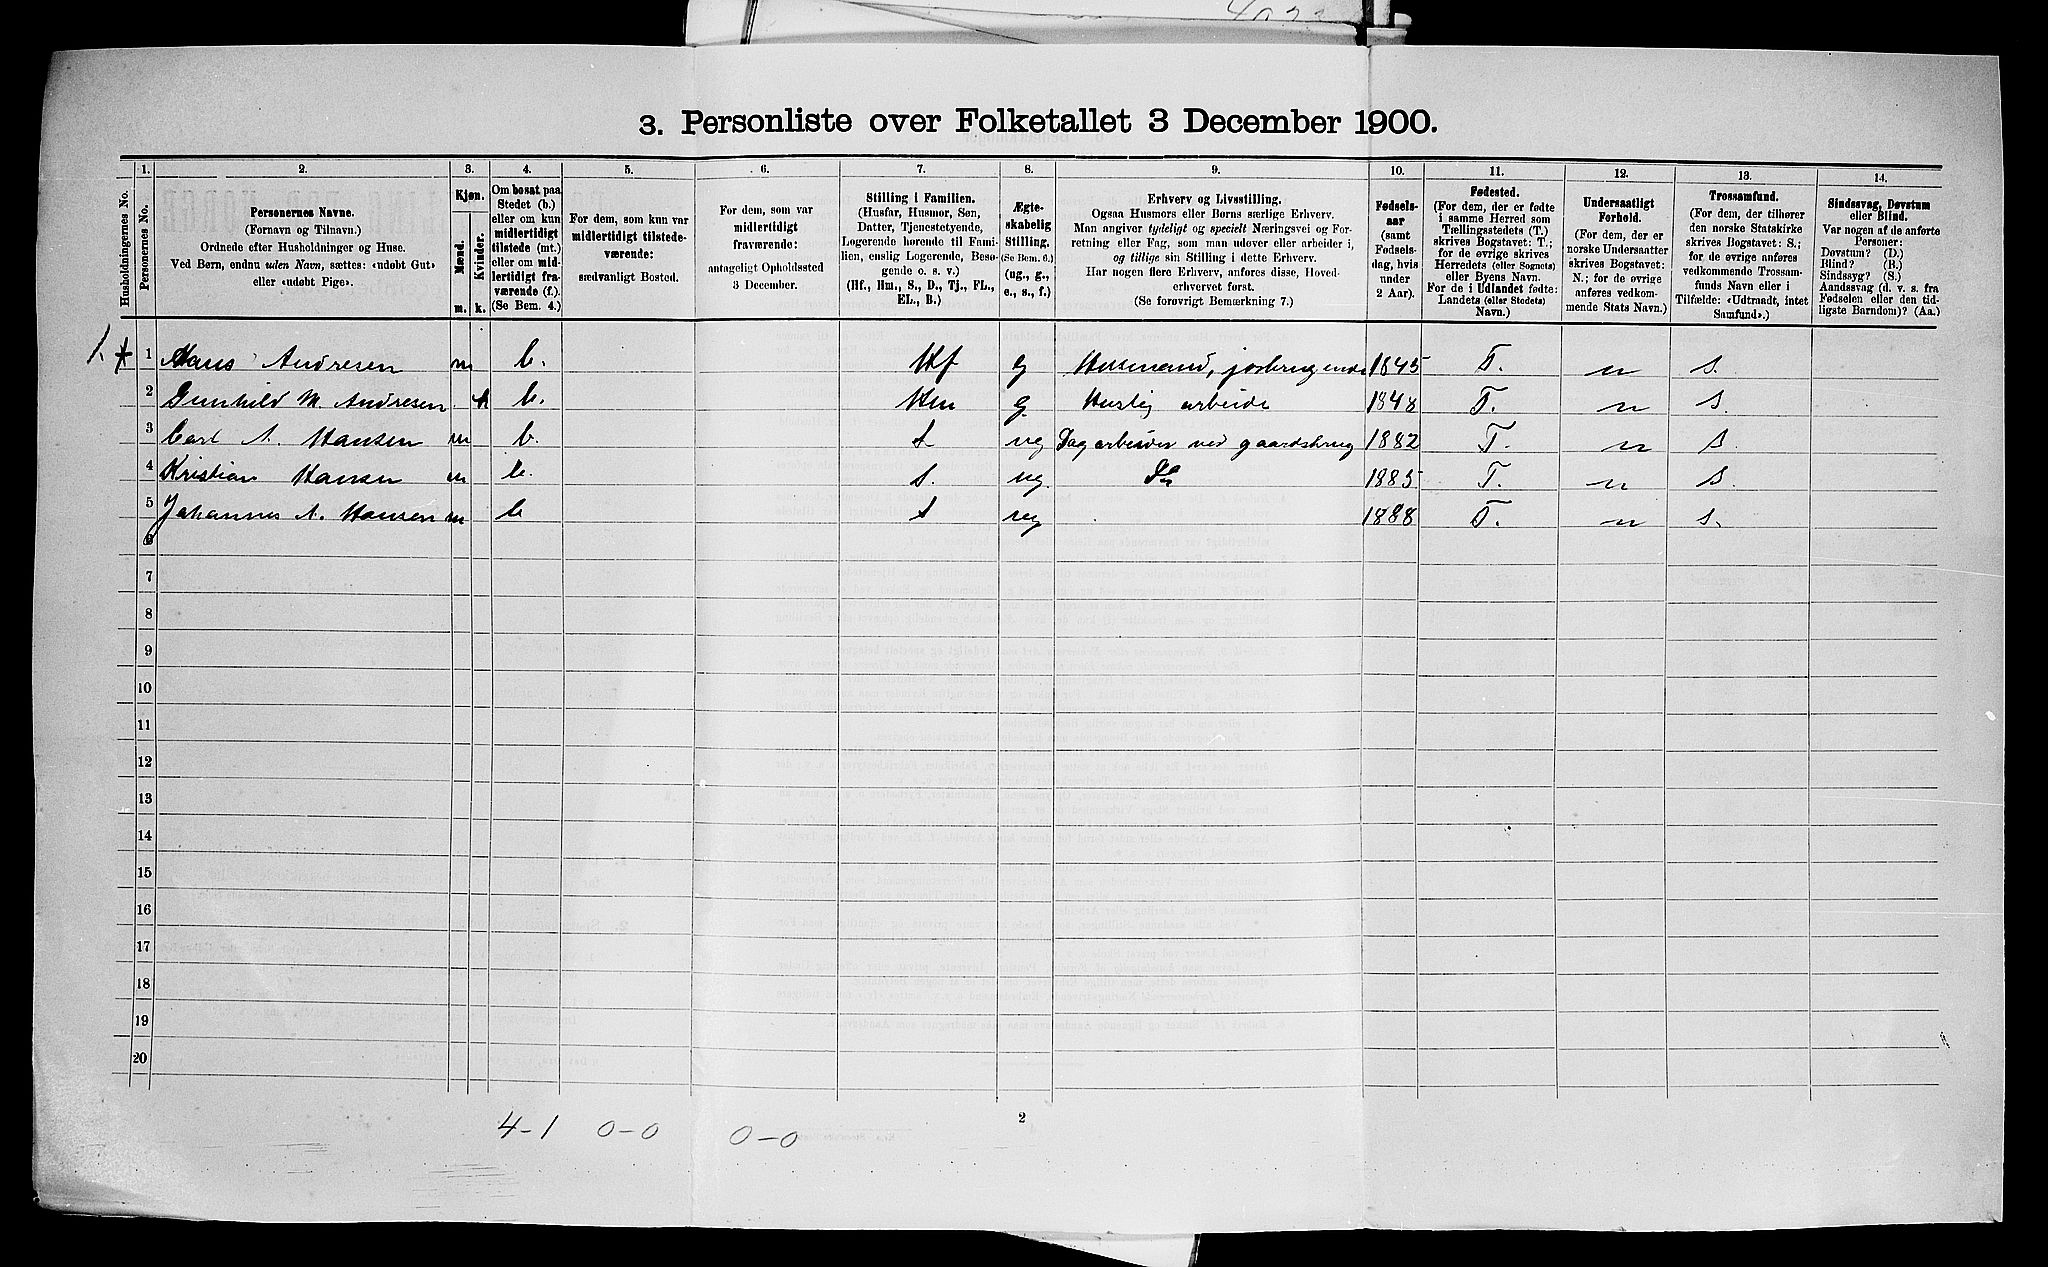 3. Personliste over Folketallet 3 December 1900.
Husholdningernes No.
1.
Personernes No.
2.
Personernes Navne.
(Fornavn og Tilnavn.)
Ordnede efter Husholdninger og Huse.
Ved Børn, endnu uden Navn, sættes: «udøbt Gut»
eller «udøbt Pige».
3.
Kjøn.
Mænd.
Kvinder.
m. k.
4.
Om bosat paa
Stedet (b.)
eller om kun
midlertidigt
tilstede (mt.)
eller om mid-
lertidigt fra-
værende (f.).
(Se Bem. 4.)
5.
For dem, som kun var
midlertidigt tilstede-
værende:
sædvanligt Bosted.
6.
For dem, som var
midlertidigt
fraværende:
antageligt Opholdssted
3 December.
7.
Stilling i Familien.
(Husfar, Husmor, Søn,
Datter, Tjenestetyende,
Logerende hørende til Fami-
lien, enslig Logerende, Besø-
gende o. s. v.)
(Hf., Hm., S., D., Tj., FL.,
EL., B.)
8.
Ægte-
skabelig
Stilling.
(Se Bem. 6.)
(ug., g.,
e., s., f.)
9.
Erhverv og Livsstilling.
Ogsaa Husmors eller Børns særlige Erhverv.
Man angiver tydeligt og specielt Næringsvei og For-
retning eller Fag, som man udover eller arbeider i,
og tillige sin Stilling i dette Erhverv.
Har nogen flere Erhverv, anføres disse, Hoved-
erhvervet først.
(Se forøvrigt Bemærkning 7.)
10.
Fødsels-
aar
(samt
Fødsels-
dag, hvis
under
2 Aar).
11.
Fødested.
(For dem, der er fødte
i samme Herred som
Tællingsstedets (T.)
skrives Bogstavet: T.;
for de øvrige skrives
Herredets (eller Sognets)
eller Byens Navn.
For de i Udlandet fødte:
Landets (eller Stedets)
Navn.)
12.
Undersaatligt
Forhold.
(For dem, der er
norske Undersaatter
skrives Bogstavet:
N.; for de øvrige
anføres vedkom-
mende Stats Navn.)
13.
Trossamfund.
(For dem, der tilhører
den norske Statskirke
skrives Bogstavet: S.;
for de øvrige anføres
vedkommende Trossam-
funds Navn eller i
Tilfælde: «Udtraadt, intet
Samfund».)
14.
Sindssvag, Døvstum
eller Blind.
Var nogen af de anførte
Personer:
Døvstum? (D.)
Blind? (B.)
Sindssyg? (S.)
Aandssvag (d. v. s. fra
Fødselen eller den tid-
ligste Barndom)? (Aa.)
1. 1 Hans Andresen m b. Hf g Husmand, jorbrugende 1845 T. n S.
2 Gunhild M. Andresen k b. Hm g. Huslig arbeide 1848 T. n S.
3 Carl A. Hansen m b. S ug Dagarbeider ved gaardsbrug 1882 T. n S.
4 Kristian Hansen m b. S. ug. Do 1885 T. n S.
5 Johannes A. Hansen m b S ug 1888 T. n S.
6
7
8
9
10
11
12
13
14
15
16
17
18
19
20
4-1 0-0 0-0
2